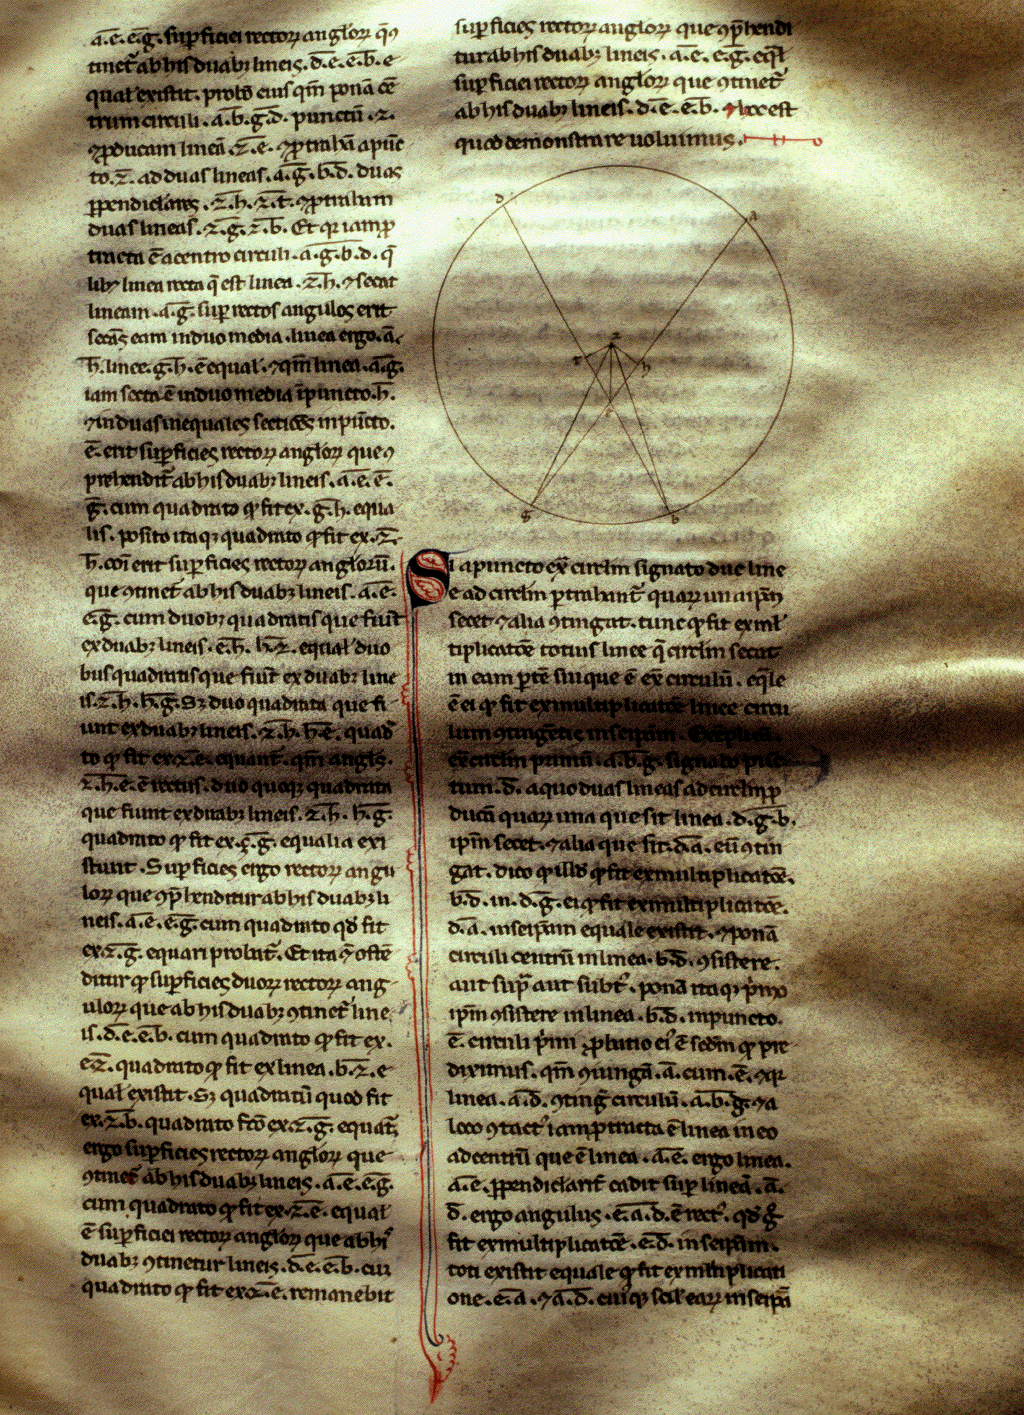 .a̅.e̅. e̅.g̅. suꝑficiei rectoꝝ angloꝝ q̅ꝯ
tinet᷑ ab hisduabꝫ lineis. d̅.e̅. e̅.b̅. e
qual̕ existit. probo eius qm̅ pona̅ ce̅
trum circuli .a̅.b̅.g̅.d̅. punctu̅ .z̅.
⁊ꝓducam linea̅ .z̅.e̅. ⁊ꝓtraha̅ a pūc
to .z̅. ad duas lineas .a̅.g̅. b̅.d̅. duas
ꝑpendiclares .z̅.h̅. z̅.t̅. ⁊ꝓtraham
duas lineas .z̅.g̅. z̅.b̅. Et qꝛ iam ꝓ
tracta e̅ a centro circuli .a̅.g̅.b̅.d̅. q̅
lib᷑ linea recta q̅ est linea .z̅.h̅. ⁊ secat
lineam .a̅.g̅. suꝑ rectos angulos erit
seca̅s eam in duo media . linea ergo .a̅.
h̅. linee .g̅.h̅. e̅ equal̕. ⁊qm̅ linea .a̅.g̅.
iam secta e̅ in duo media i̅ puncto .h̅.
⁊ in duas inequales sectio̅es in pūcto.
e̅. erit suꝑficies rectoꝝ angloꝝ que ꝯ
prehendit᷑ ab his duabꝫ lineis .a̅.e̅. e̅.
g̅. cum quadrato qꝙ fit ex .g̅.h̅. equa
lis. posito itaqꝫ quadrato qꝙ fit ex .z̅.
h̅. co̅i erit suꝑficies rectoꝝ angloru̅.
que ꝯtinet᷑ ab his duabꝫ lineis .a̅.e̅.
e̅.g̅. cum duobꝫ quadratis que fiūt
ex duabꝫ lineis .e̅.h̅. h̅.z̅. equal̕ duo
bus quadratis que fiūt ex duabꝫ line
is .z̅.h̅. h̅.g̅. Sꝫ duo quadrata que fi
unt ex duabꝫ lineis .z̅.h̅. h̅.e̅. quad᷑
to qꝙ fit ex .z̅.e̅. equant᷑. qm̅ angl̕s.
z̅.h̅.e̅. e̅ rectus. duo quoqꝫ quadrata
que fiunt ex duabꝫ lineis .z̅.h̅. h̅.g̅.
quadrato qꝙ fit ex .z̅.g̅. equalia exi
stunt. Suꝑficies ergo rectoꝝ angu
loꝝ que ꝯp̅henditur ab his duabꝫ li
neis .a̅.e̅. e̅.g̅. cum quadrato qd̅ fit
ex .z̅.g̅. equari probat᷑. Et ita ⁊ oste̅
ditur qꝙ suꝑficies duoꝝ rectoꝝ ang
uloꝝ que ab his duabꝫ ꝯtinet᷑ line
is .d̅.e̅. e̅.b̅. cum quadrato qꝙ fit ex.
e̅.z̅. quadrato qꝙ fit ex linea .b̅.z̅. e
qual̕ existit. Sꝫ quadratu̅ quod fit
ex .z̅.b̅. quadrato fc̅o ex .z̅.g̅. equat᷑.
ergo suꝑficies rectoꝝ angloꝝ que
ꝯtinet᷑ ab his duabꝫ lineis .a̅.e̅. e̅.g̅.
cum quadrato qꝙ fit ex .z̅.e̅. equal̕
e̅ suꝑficiei rectoꝝ angloꝝ que ab hi᷒
duabꝫ ꝯtinetur lineis .d̅.e̅. e̅.b̅. cū
quadrato qꝙ fit ex .z̅.e̅. remanebit
suꝑficies rectoꝝ angloꝝ que ꝯp̅hendi
tur ab his duabꝫ lineis .a̅.e̅. e̅.g̅. eq̅l̕
suꝑficiei rectoꝝ angloꝝ que ꝯtinet᷑
ab his duabꝫ lineis .d̅.e̅. e̅.b̅. ⁊ hoc est
quod demonstrare uoluimus.
d
a
z
t
h
e
g
b
Si a puncto ex̅ circl̅m signato due line
e ad circl̅m ꝑtrahant᷑ quaꝝ una ip̅m
secet ⁊ alia ꝯtingat. tunc qꝙ fit ex ml̕
tiplicato̅e totius linee q̅ circl̅m secat
in eam ꝑte̅ sui que e̅ ex̅ circulu̅. eq̅le
e̅ ei qꝙ fit ex multiplicato̅e linee circu
lum ꝯtingentis in seipsam. Exempli ca.
ex̅ circl̅m primu̅ .a̅.b̅.g̅. signato pūc
tum .d̅. a quo duas lineas ad circl̅m ꝓ
duca̅ quaꝝ una que sit linea .d̅.g̅.b̅.
ip̅m secet. ⁊ alia que sit .d̅.a̅. eu̅ ꝯtin
gat. dico qꝙ illud qꝙ fit ex multiplicato̅e.
b̅.d̅. in .d̅.g̅. ei qꝙ fit ex multiplicato̅e.
d̅.a̅. in seip̅am equale existit. ⁊ pona̅
circuli centru̅ in linea .b̅.d̅. ꝯsistere.
aut sup̅ aut subt᷑. pona̅ itaqꝫ p̅mo
ip̅m ꝯsistere in linea .b̅.d̅. in puncto.
e̅. circuli p̅mi ꝓbatio ei᷒ e̅ sedm̅ qꝙ pre
diximus. qm̅ ꝯiunga̅ .a̅. cum .e̅. ⁊qꝛ
linea .a̅.d̅. ꝯting᷑ circulu̅ .a̅.b̅.g̅. ⁊ a
loco ꝯtact᷒ iam ꝓtracta e̅ linea in eo
ad centru̅ que e̅ linea .a̅.e̅. ergo linea.
a̅.e̅. ꝑpendiclarit᷑ cadit suꝑ linea̅ .a̅.
d̅. ergo angulus .e̅.a̅.d̅. e̅ rect᷒. qd̅ g᷑
fit ex multiplicato̅e .e̅.d̅. in seip̅am.
toti existit equale qꝙ fit ex ml̕tiplicati
one .e̅.a̅. ⁊ a̅.d̅. cui᷒qꝫ scil̕ eaꝝ in seip̅a̅